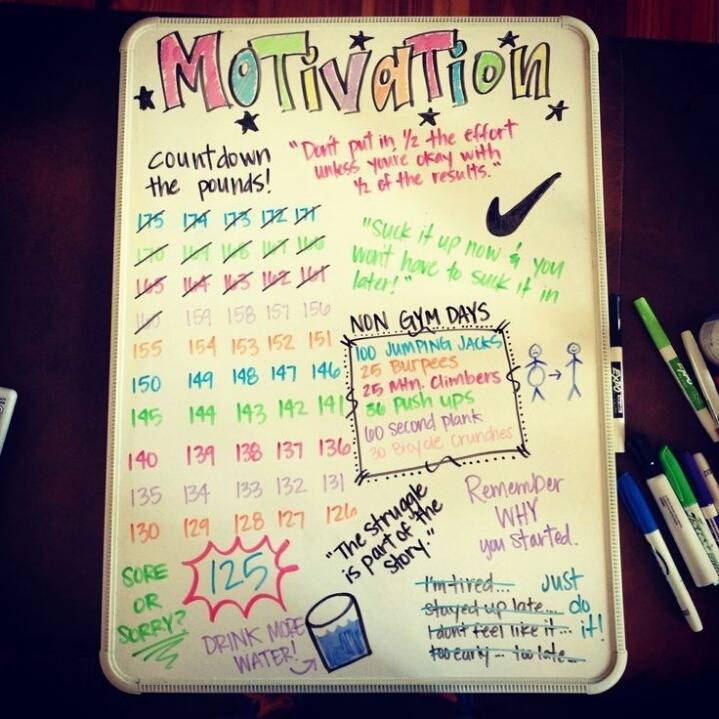 MOTIVATION
countdown
the pounds!
"Don't put in 1/2 the effort
unless you're okay with
1/2 of the results."
175 174 173 172 171
170 169 168 167 166
165 164 163 162 161
160 159 158 157 156
155 154 153 152 151
150 149 148 147 146
145 144 143 142 141
140 139 138 137 136
135 134 133 132 131
130 129 128 127 126
125
"Suck it up now & you
won't have to suck it in
later!"
NON GYM DAYS
100 JUMPING JACKS
25 Burpees
25 Mtn. Climbers
30 Push ups
60 second plank
30 Bicycle Crunches
"The struggle
is part of the
story."
Remember
WHY
you started.
SORE
OR
SORRY?
DRINK MORE
WATER!
I'm tired...
stayed up late...
I don't feel like it...
too early... too late...
Just
do
it!
EXPO